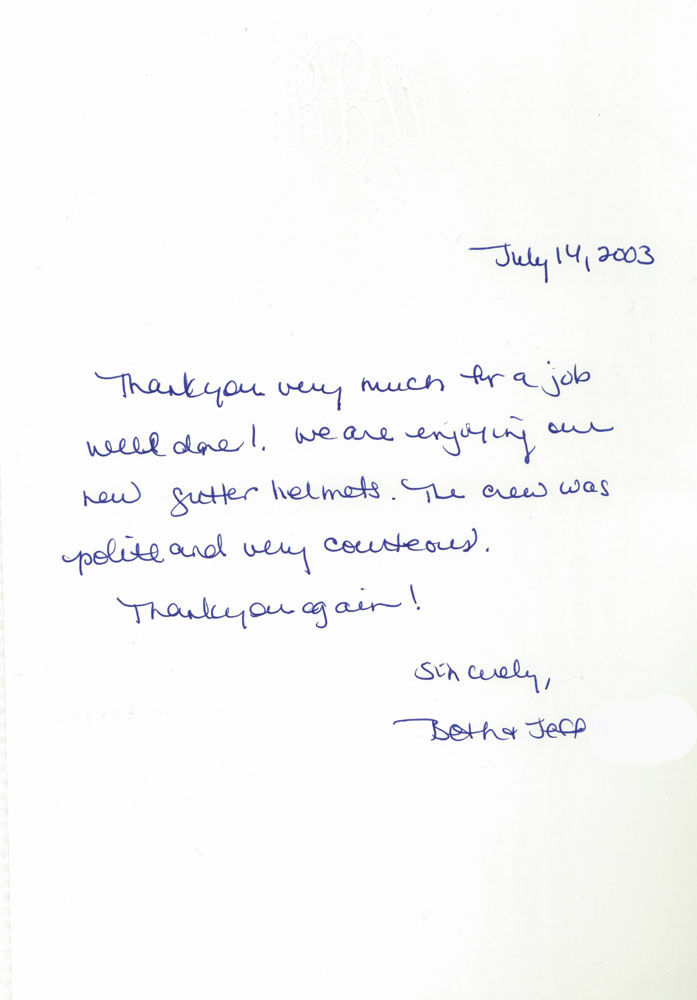 July 14, 2003
Thank you very much for a job
well done! We are enjoying our
new gutter helmets. The crew was
polite and very courteous.
Thank you again!
Sincerely,
Beth & Jeff